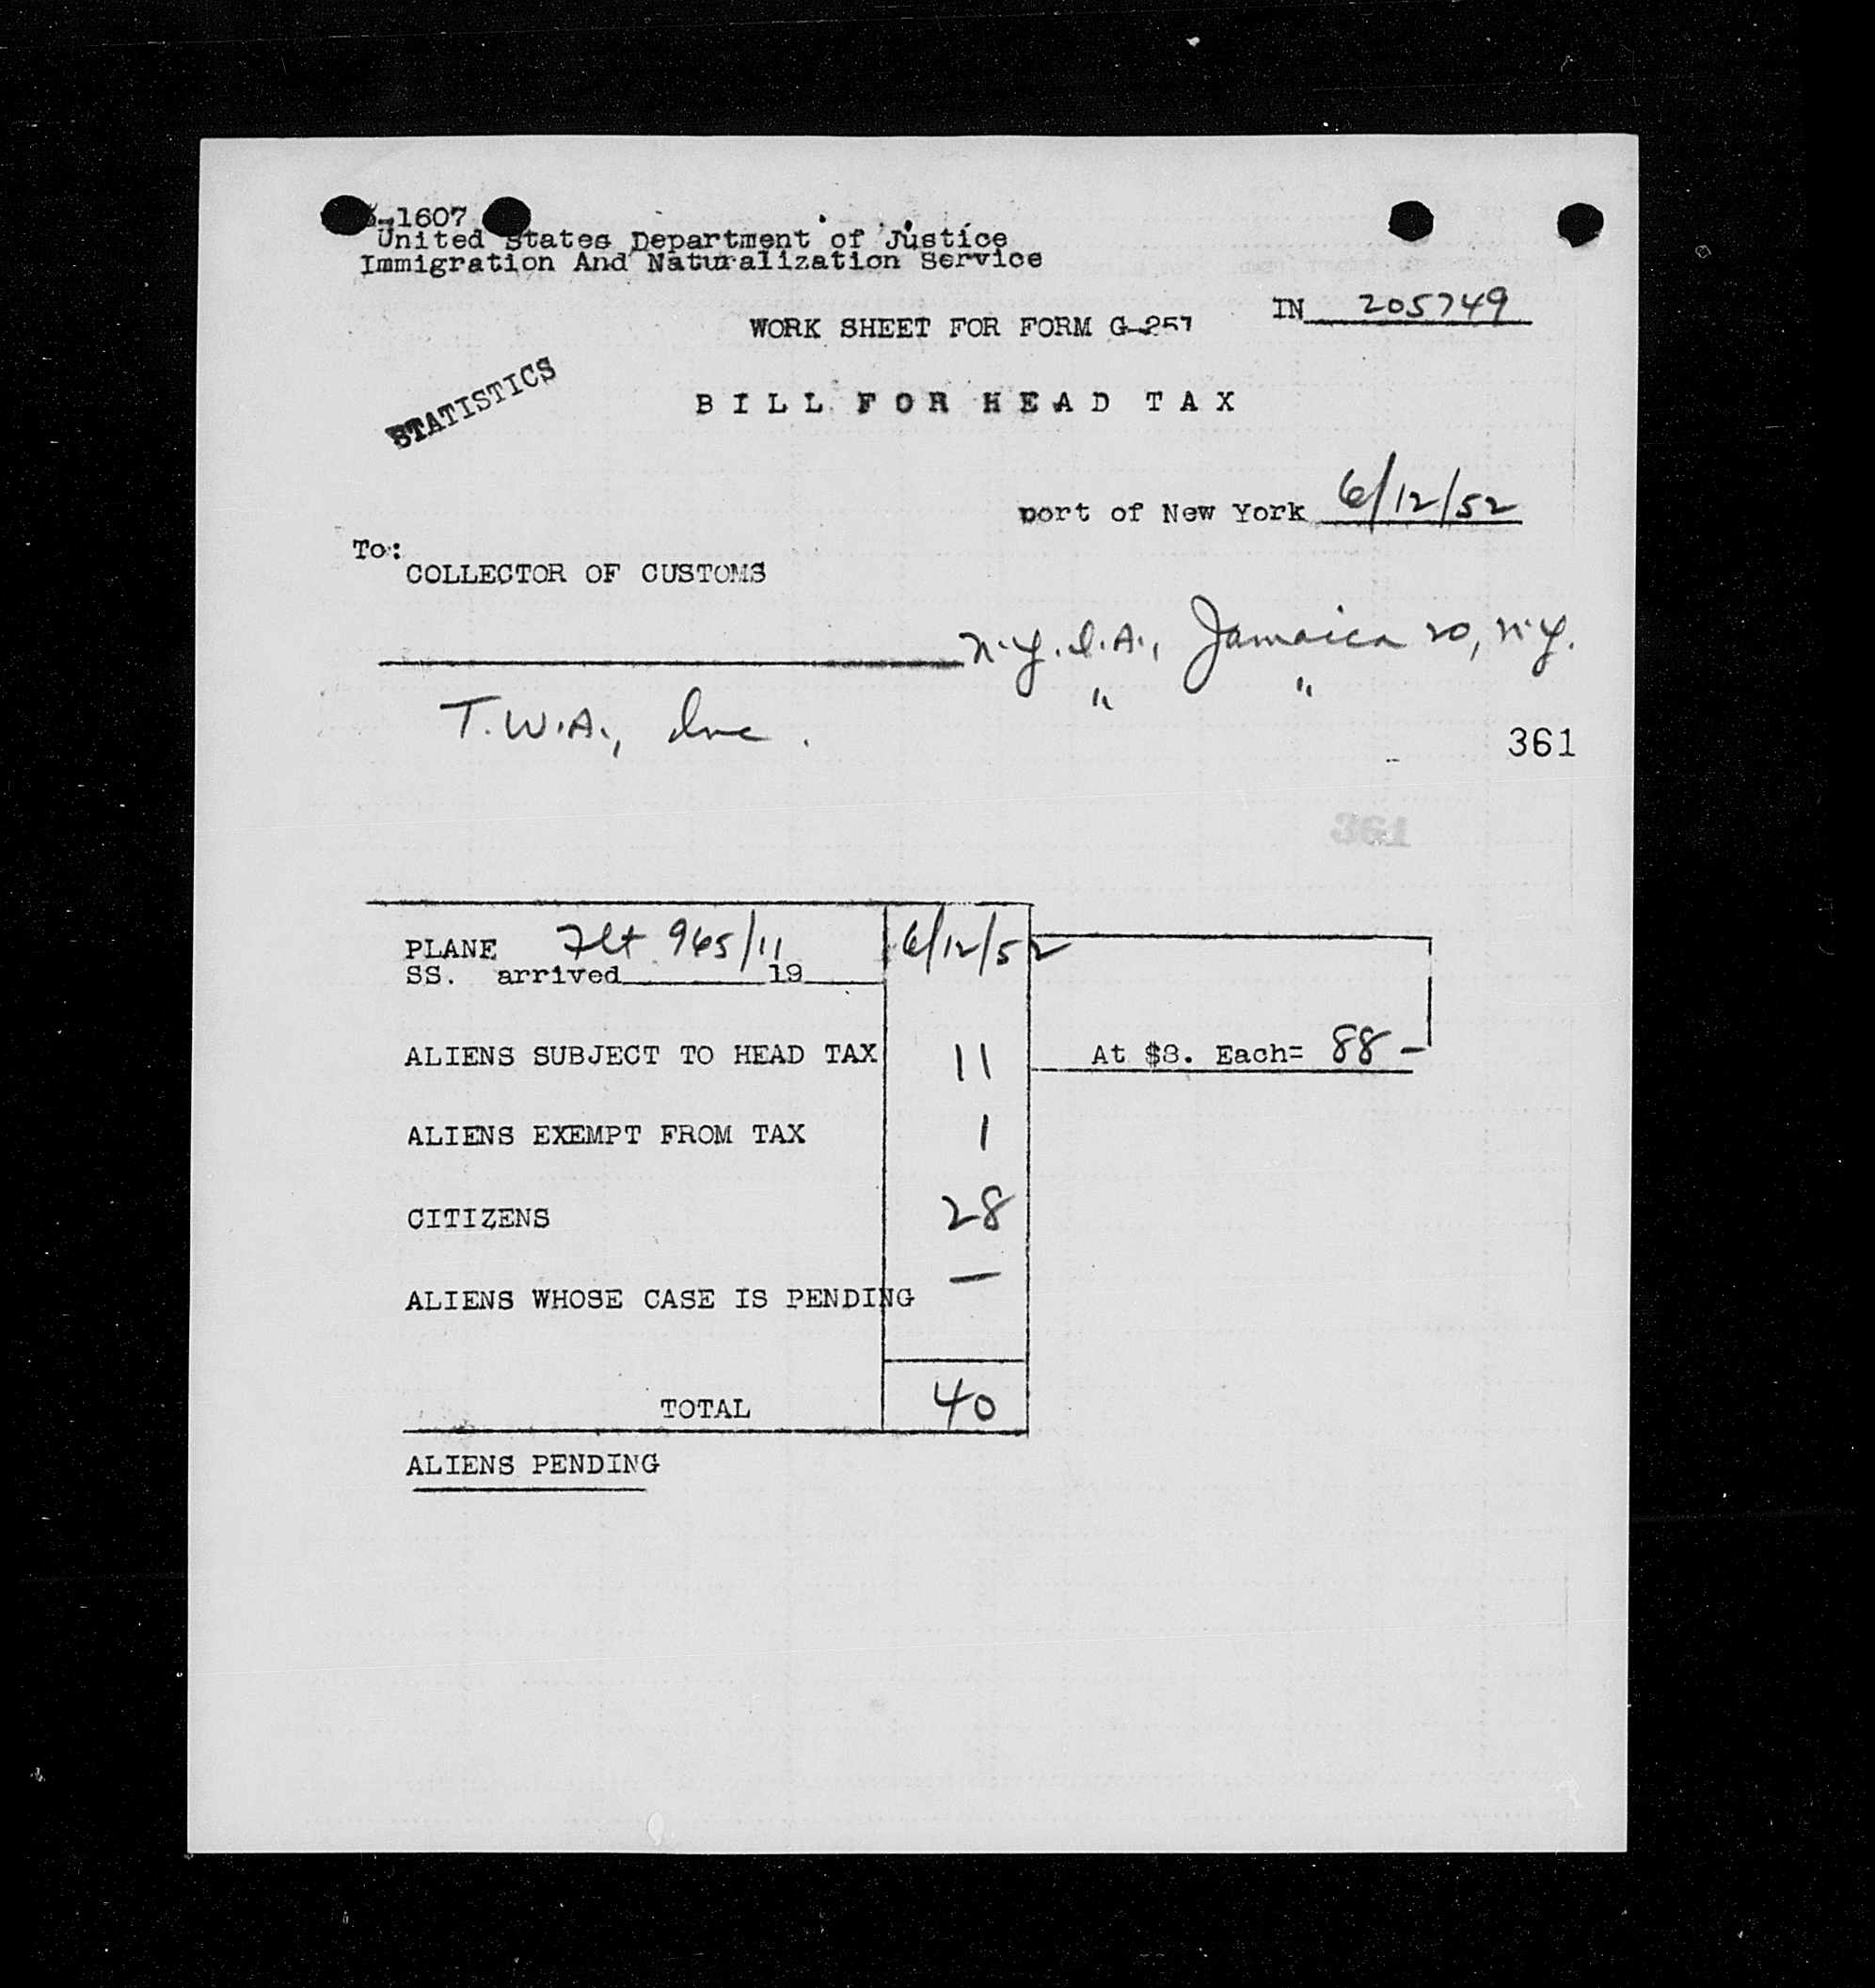 -1607
United States Department of Justice
Immigration And Naturalization Service
IN 205749
WORK SHEET FOR FORM G-257
STATISTICS
BILL FOR HEAD TAX
port of New York 6/12/52
To:
COLLECTOR OF CUSTOMS
N.Y.I.A., Jamaica 20, N.Y.
" "
T.W.A., Inc.
361
361
PLANE Flt 965/11 6/12/52
SS. arrived 19
ALIENS SUBJECT TO HEAD TAX 11 At $8. Each= 88 -
ALIENS EXEMPT FROM TAX 1
CITIZENS 28
ALIENS WHOSE CASE IS PENDING —
TOTAL 40
ALIENS PENDING